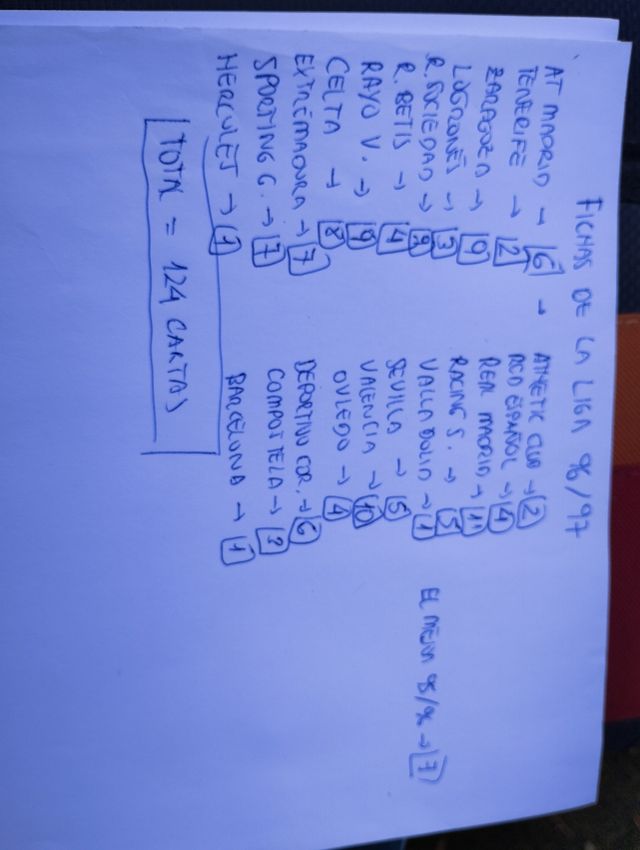 FICHAS DE LA LIGA 96/97
AT MADRID → 6 →
TENERIFE → 2
ZARAGOZA → 9
LOGROÑÉS → 3
R. SOCIEDAD →
R. BETIS → 4
RAYO V. → 9
CELTA → 8
EXTREMADURA → 7
SPORTING G. → 7
HERCULES → 1
ATHETIC CLUB → 2
RCD ESPAÑOL → 4
REAL MADRID → 11
RACING S. → 5
VALLADOLID → 1
SEVILLA → 5
VALENCIA → 10
OVIEDO → 4
DEPORTIVO COR. → 6
COMPOSTELA →
BARCELONA → 1
EL MEJOR 95/96 → 7
TOTAL = 124 CARTAS